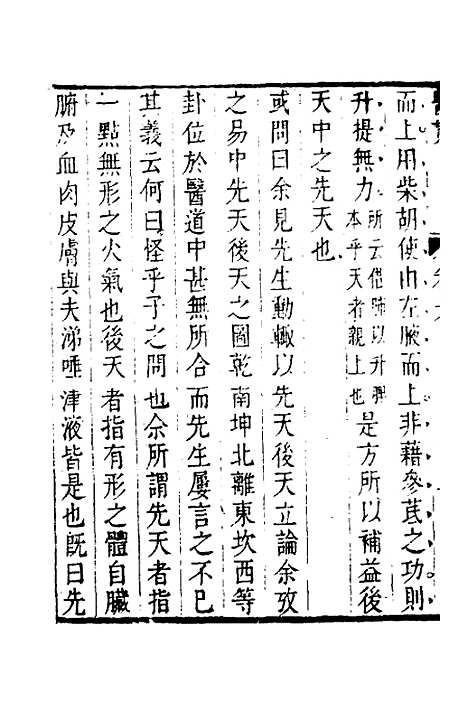 而上用柴胡使由左腋而上非藉參芪之功則
升提無力所云借肺以升脾本乎天者親上也是方所以補益後
天中之先天也
或問曰余見先生動輒以先天後天立論余攷
之易中先天後天之圖乾南坤北離東坎西等
卦位於醫道中甚無所合而先生屢言之不已
其義云何曰怪乎子之問也余所謂先天者指
一點無形之火氣也後天者指有形之體自臟
腑及血肉皮膚與夫涕唾津液皆是也旣曰先